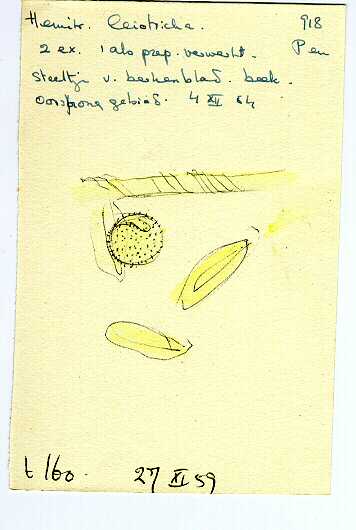 Hemitr. leiotricha. 918
2 ex. 1 als prep. verwerkt. Pen
steeltje v. berkenblad. beek.
oorsprong gebied. 4 XII 54
t 160. 27 XI 59